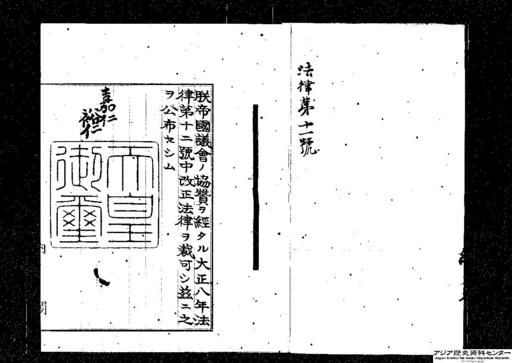 法律第十一號
朕帝國議會ノ協贊ヲ經タル大正八年法
律第十二號中改正法律ヲ裁可シ茲ニ之
ヲ公布セシム
嘉仁
裕仁
天皇
御璽
内
閣
アジア歴史資料センター
Japan Center for Asian Historical Records